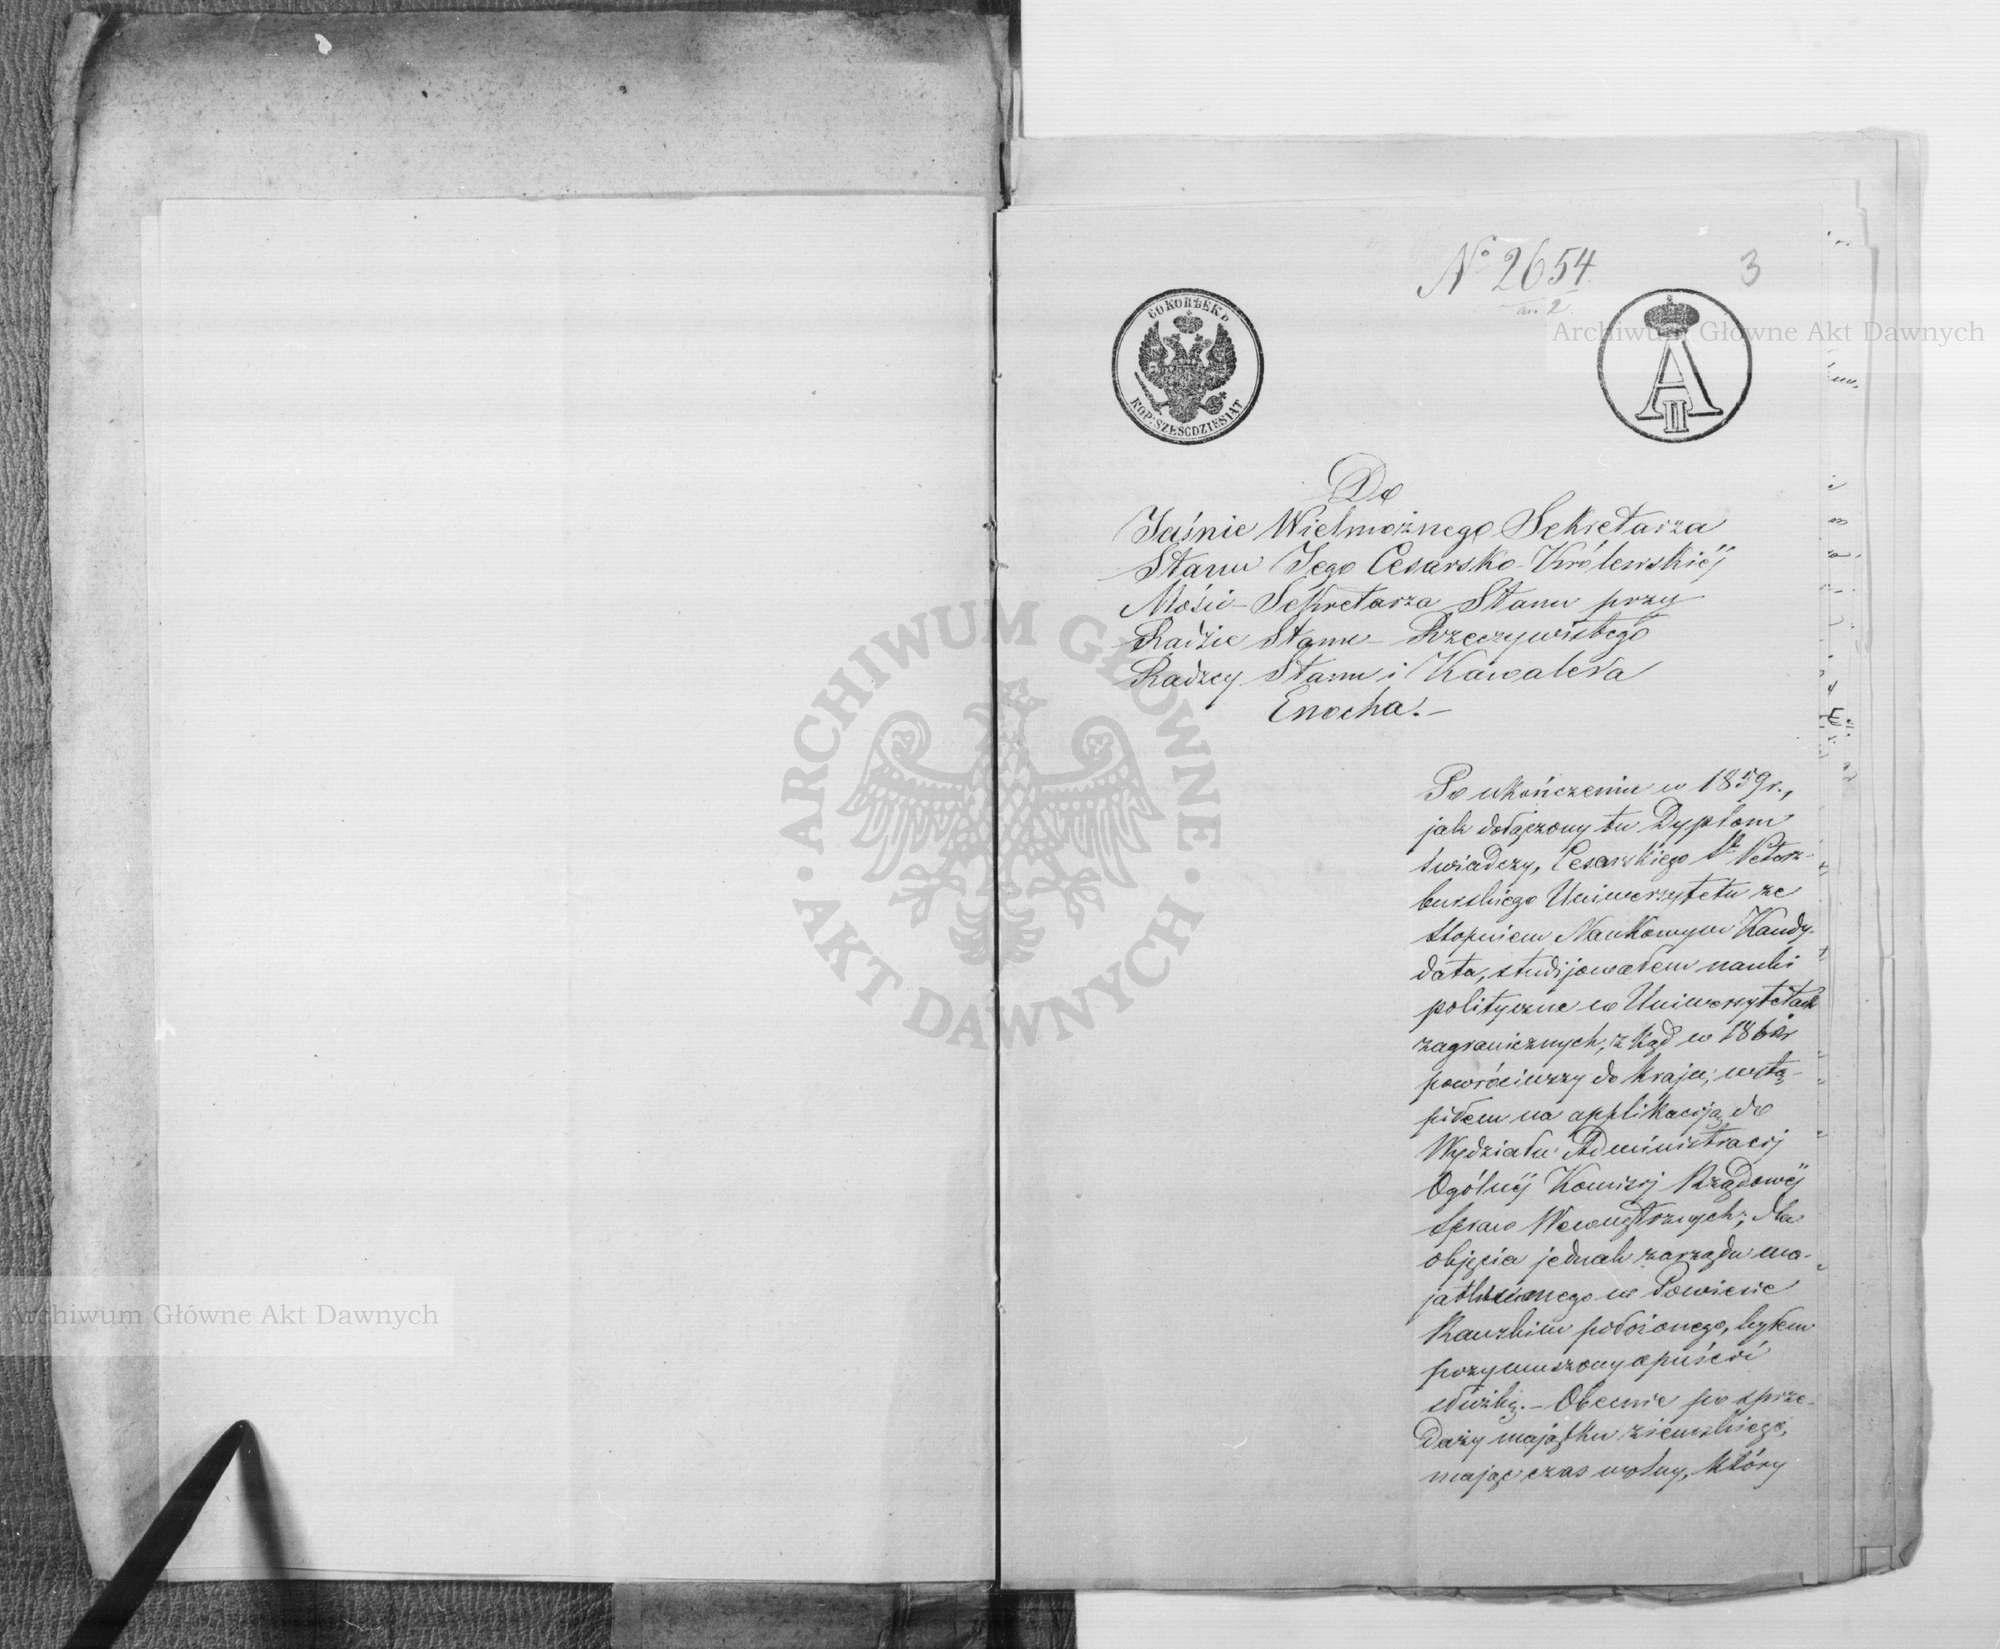 No 2654
an. 2.
3
60 КОПѢЕКЪ
KOP: SZEŚĆDZIESIĄT
A II
Do
Jaśnie Wielmożnego Sekretarza
Stanu Jego Cesarsko-Królewskiéj
Mości - Sekretarza Stanu przy
Radzie Stanu - Rzeczywistego
Radzcy Stanu i Kawalera
Enocha. -
Po ukończeniu w 1859 r.,
jak dołączony tu Dyplom
świadczy, Cesarskiego St Petersz-
burskiego Uniwersytetu ze
stopniem Naukowym Kandy-
data, studijowałem nauki
polityczne w Uniwersytetach
zagranicznych, z kąd w
powróciwszy do kraju, wstą-
piłem na applikaciją do
Wydziału Administracij
Ogólnéj Komisij Rządowéj
Spraw Wewnętrznych; dla
objęcia jednak zarządu ma-
jątku w Powiecie
Rawskim położonego, byłem
przymuszony opuścić
służbę. - Obecnie po sprze-
daży majątku ziemskiego,
mając czas wolny, który
Archiwum Główne Akt Dawnych
Archiwum Główne Akt Dawnych
ARCHIWUM GŁÓWNE · AKT DAWNYCH ·